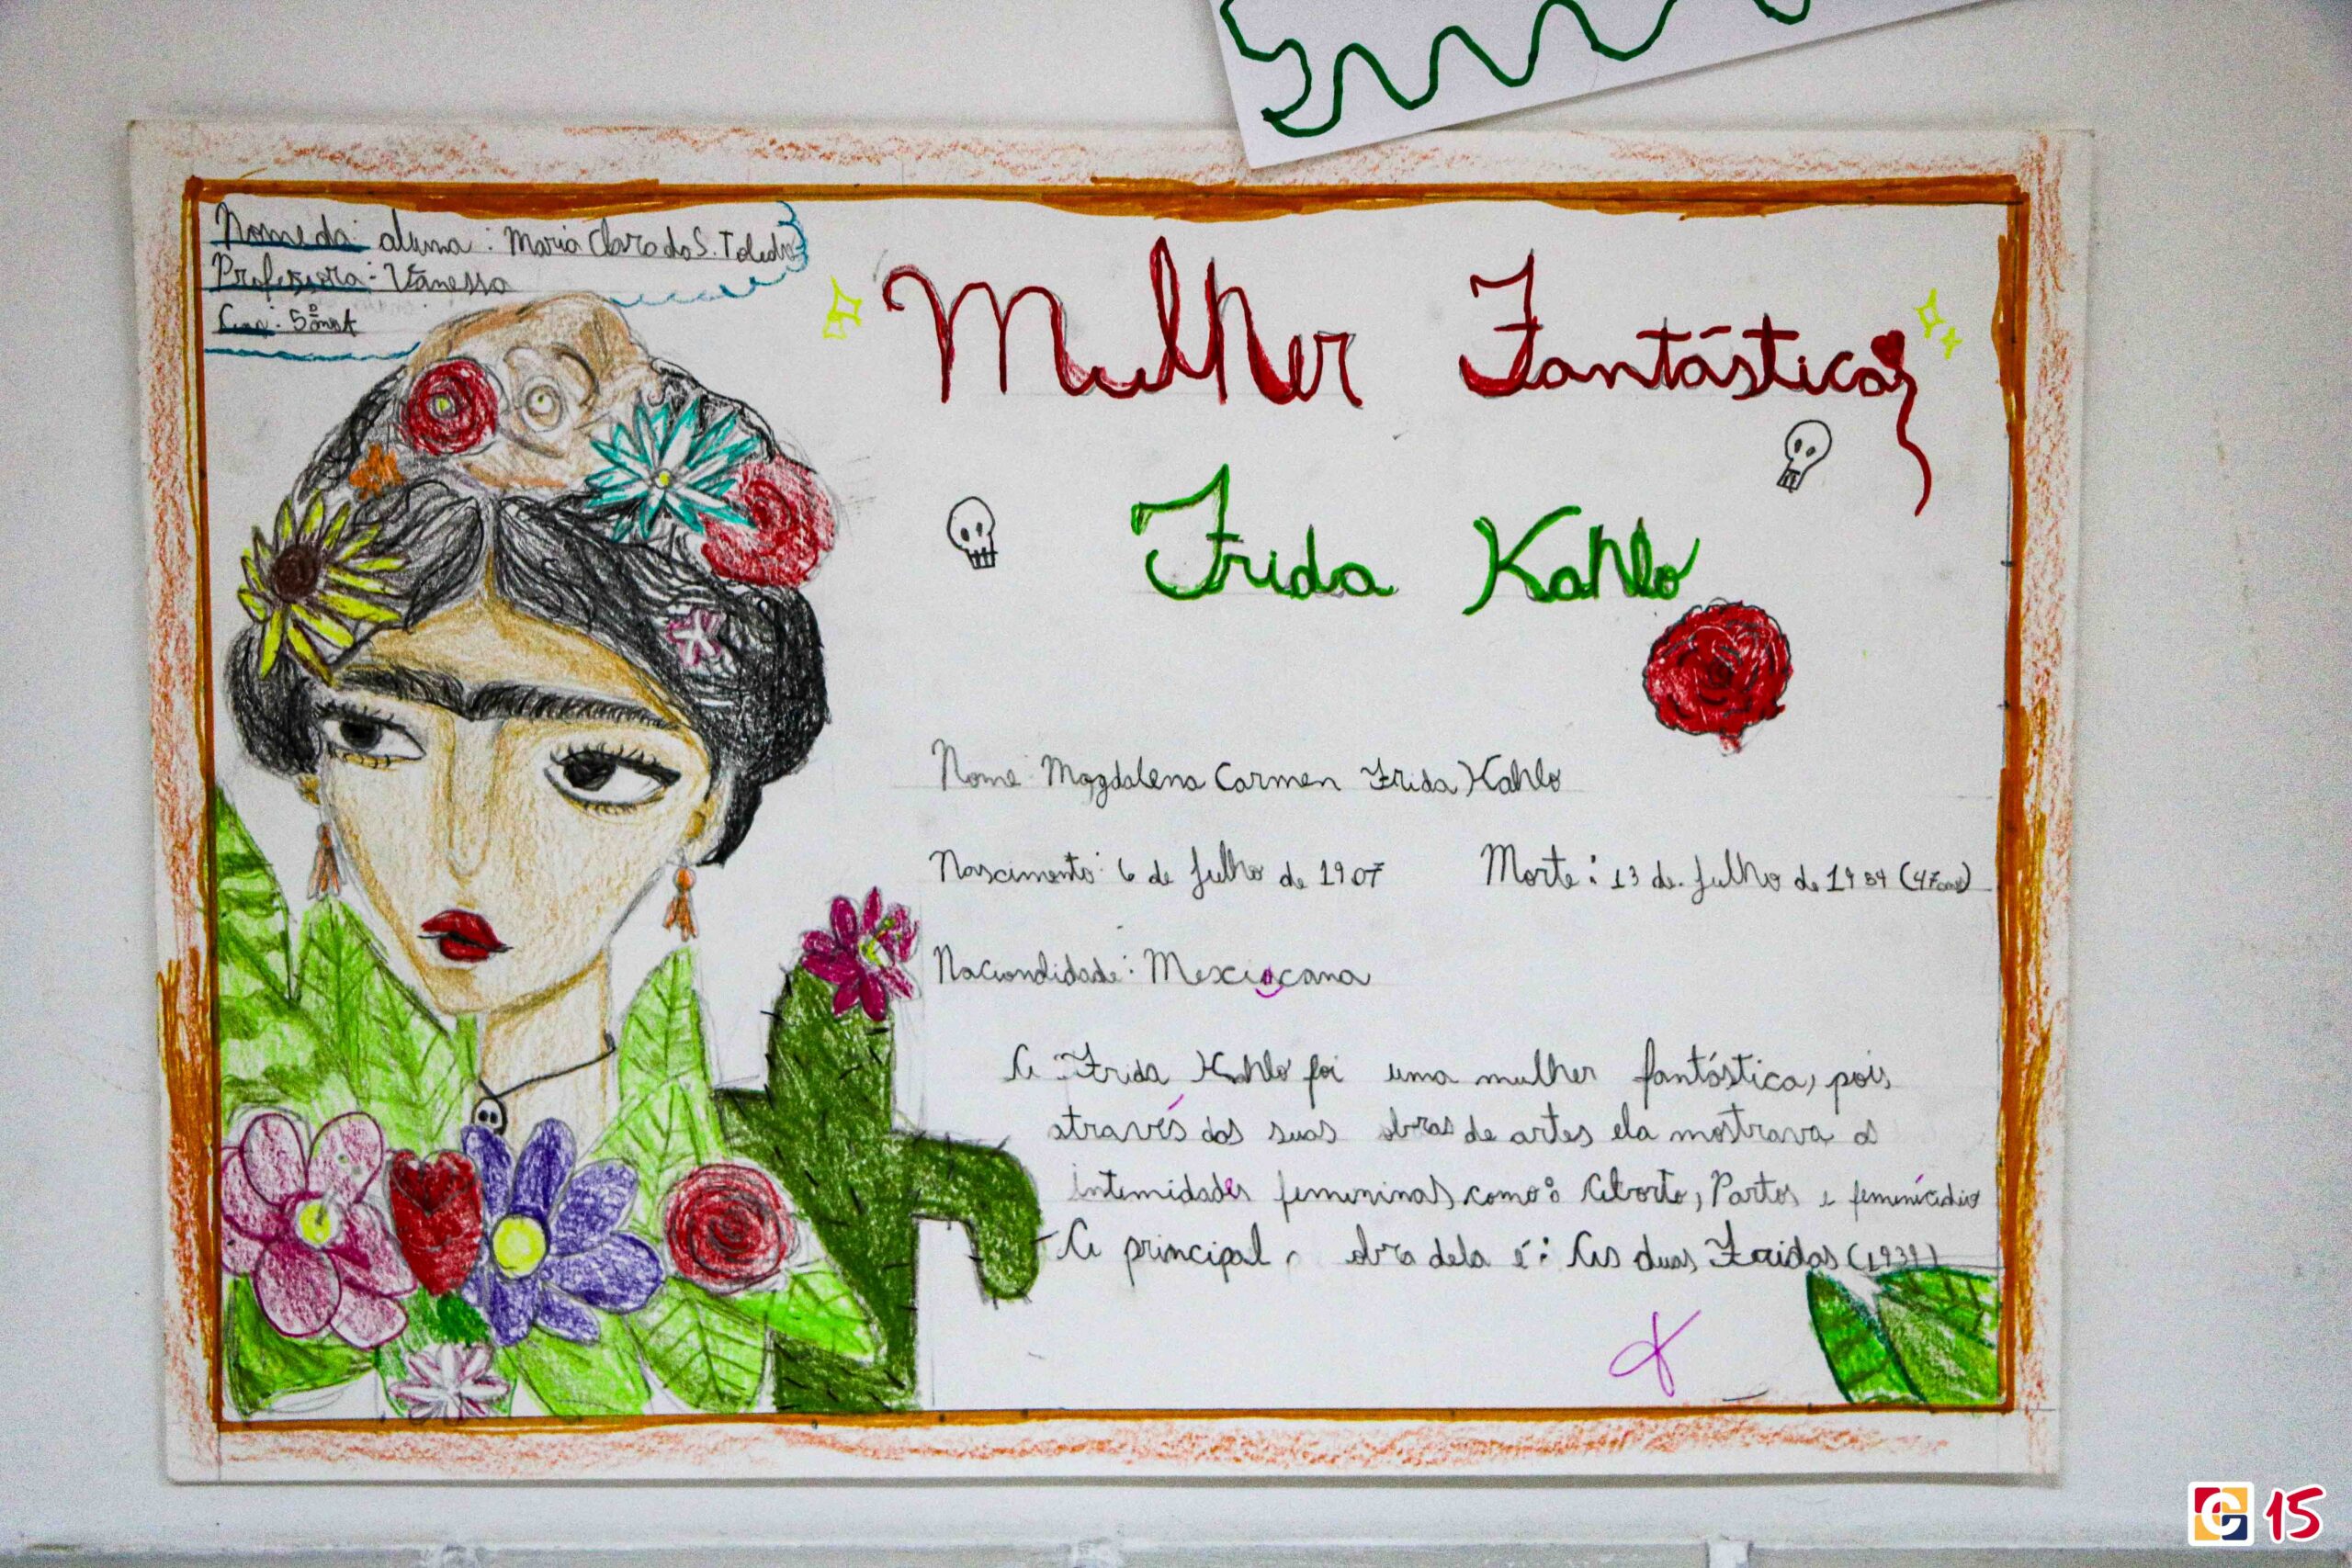 Nome da aluna: Maria Clara da S. Toledo
Professora: Vanessa
Ano: 5º ano A
Mulher Fantástica
Frida Kahlo
Nome Magdalena Carmen Frida Kahlo
Nascimento: 6 de Julho de 1907 Morte: 13 de Julho de 1954 (47 anos)
Nacionalidade: Mexicana
A Frida Kahlo foi uma mulher fantástica, pois
através das suas obras de artes ela mostrava as
intemidades femininas como: Aborto, Partos e
A principal obra dela é: As duas Fridas (1939)
15